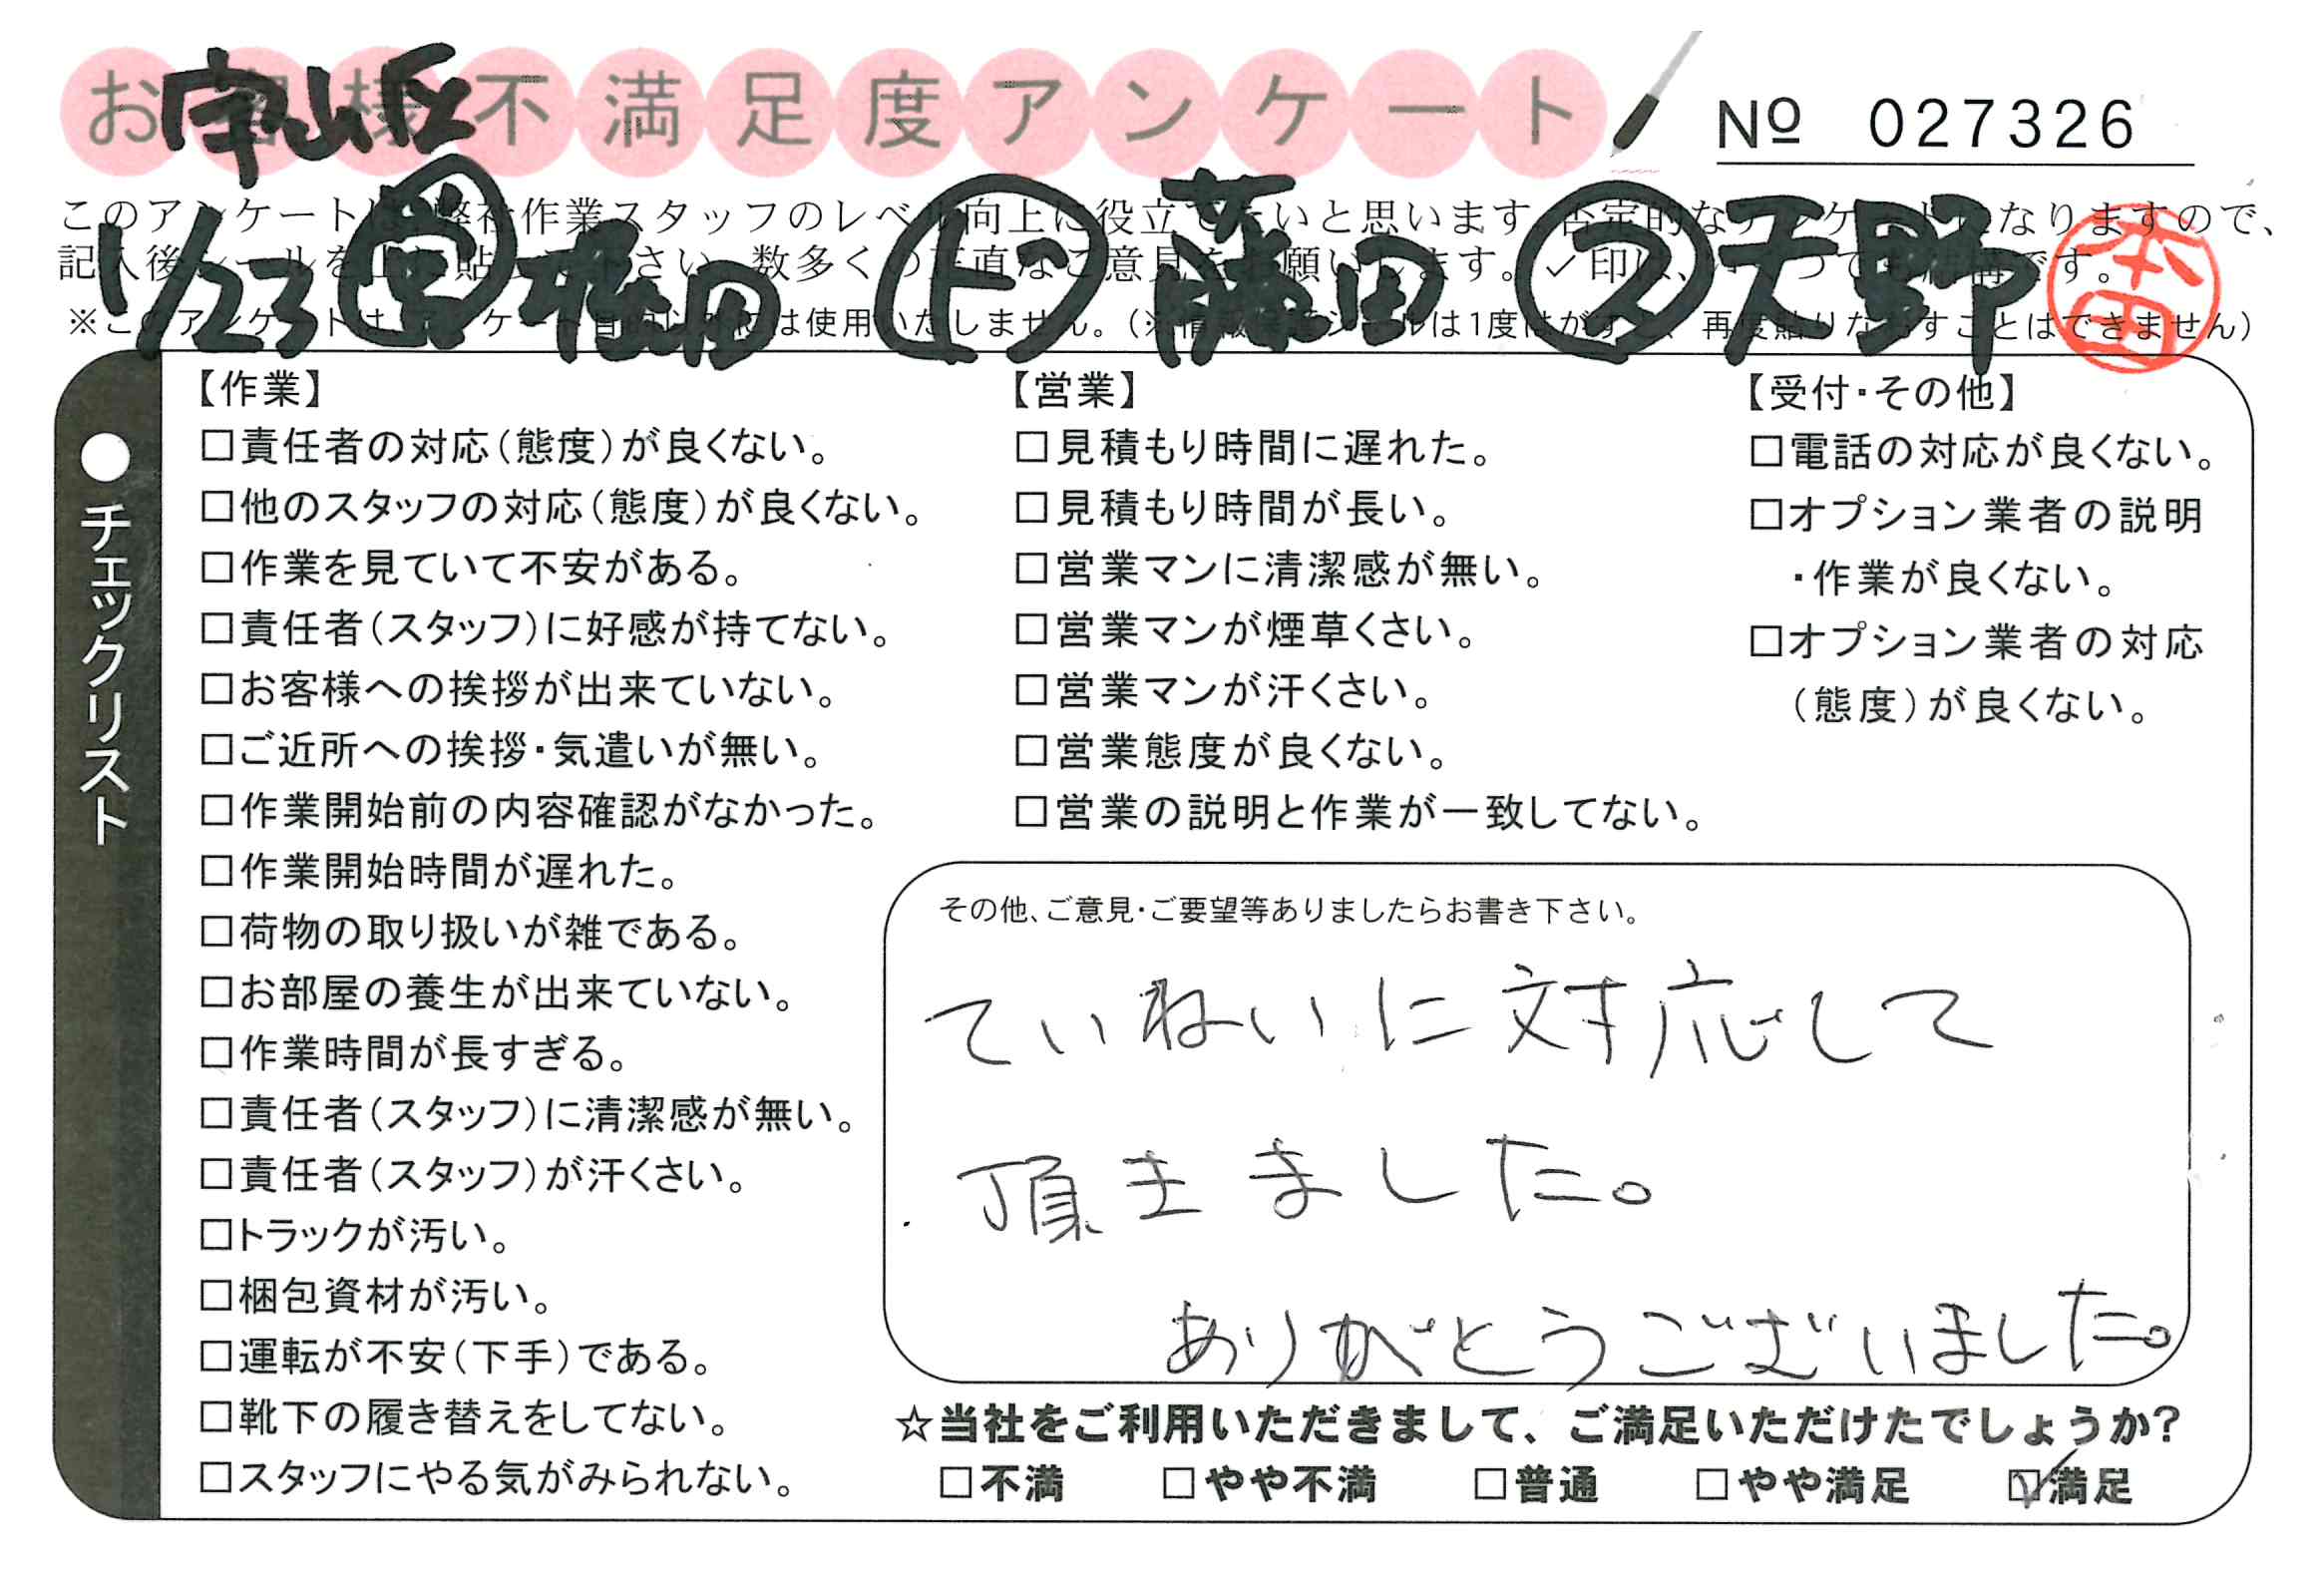 お客様不満足度アンケート
№ 027326
守山区
このアンケートは、弊社作業スタッフのレベル向上に役立てたいと思います 否定的なアンケートになりますので、
記入後シールを上に貼って下さい。数多くの正直なご意見をお願いします。✓印は、いくつでも結構です。
1/23 営 堀田 ド 藤田 ス 天野
本田
※このアンケートはアンケート目的以外には使用いたしません。（※情報保護シールは1度はがすと、再度貼りなおすことはできません）
●チェックリスト
【作業】
□責任者の対応（態度）が良くない。
□他のスタッフの対応（態度）が良くない。
□作業を見ていて不安がある。
□責任者（スタッフ）に好感が持てない。
□お客様への挨拶が出来ていない。
□ご近所への挨拶・気遣いが無い。
□作業開始前の内容確認がなかった。
□作業開始時間が遅れた。
□荷物の取り扱いが雑である。
□お部屋の養生が出来ていない。
□作業時間が長すぎる。
□責任者（スタッフ）に清潔感が無い。
□責任者（スタッフ）が汗くさい。
□トラックが汚い。
□梱包資材が汚い。
□運転が不安（下手）である。
□靴下の履き替えをしてない。
□スタッフにやる気がみられない。
【営業】
□見積もり時間に遅れた。
□見積もり時間が長い。
□営業マンに清潔感が無い。
□営業マンが煙草くさい。
□営業マンが汗くさい。
□営業態度が良くない。
□営業の説明と作業が一致してない。
【受付・その他】
□電話の対応が良くない。
□オプション業者の説明
・作業が良くない。
□オプション業者の対応
（態度）が良くない。
その他、ご意見・ご要望等ありましたらお書き下さい。
ていねいに対応して
頂きました。
ありがとうございました。
☆当社をご利用いただきまして、ご満足いただけたでしょうか?
□不満 □やや不満 □普通 □やや満足 ☑満足